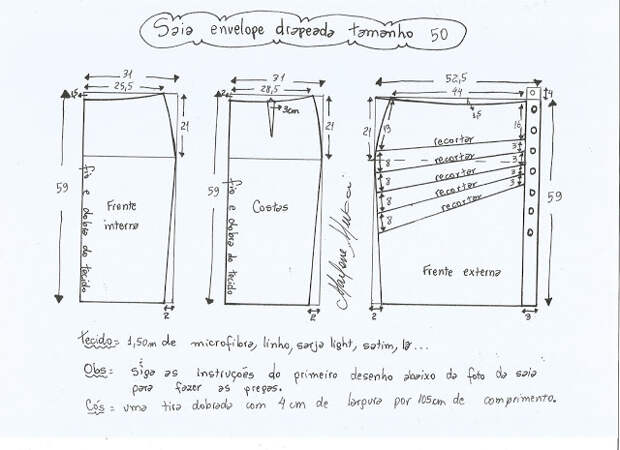 Saia envelope drapeada tamanho 50
31
25,5
1,5
21
59
fio e dobra do tecido
Frente interna
2
31
28,5
2
3cm
21
59
fio e dobra do tecido
Costas
2
Marlene Mukai
52,5
44
4
1,5
13
16
21
recortar
3
recortar
3
recortar
3
recortar
3
recortar
8
8
8
8
59
Frente externa
2
3
Tecido = 1,50m de microfibra, linho, sarja light, satim, lã...
Obs = Siga as instruções do primeiro desenho abaixo da foto da saia
para fazer as pregas.
Cós = uma tira dobrada com 4cm de largura por 105cm de comprimento.